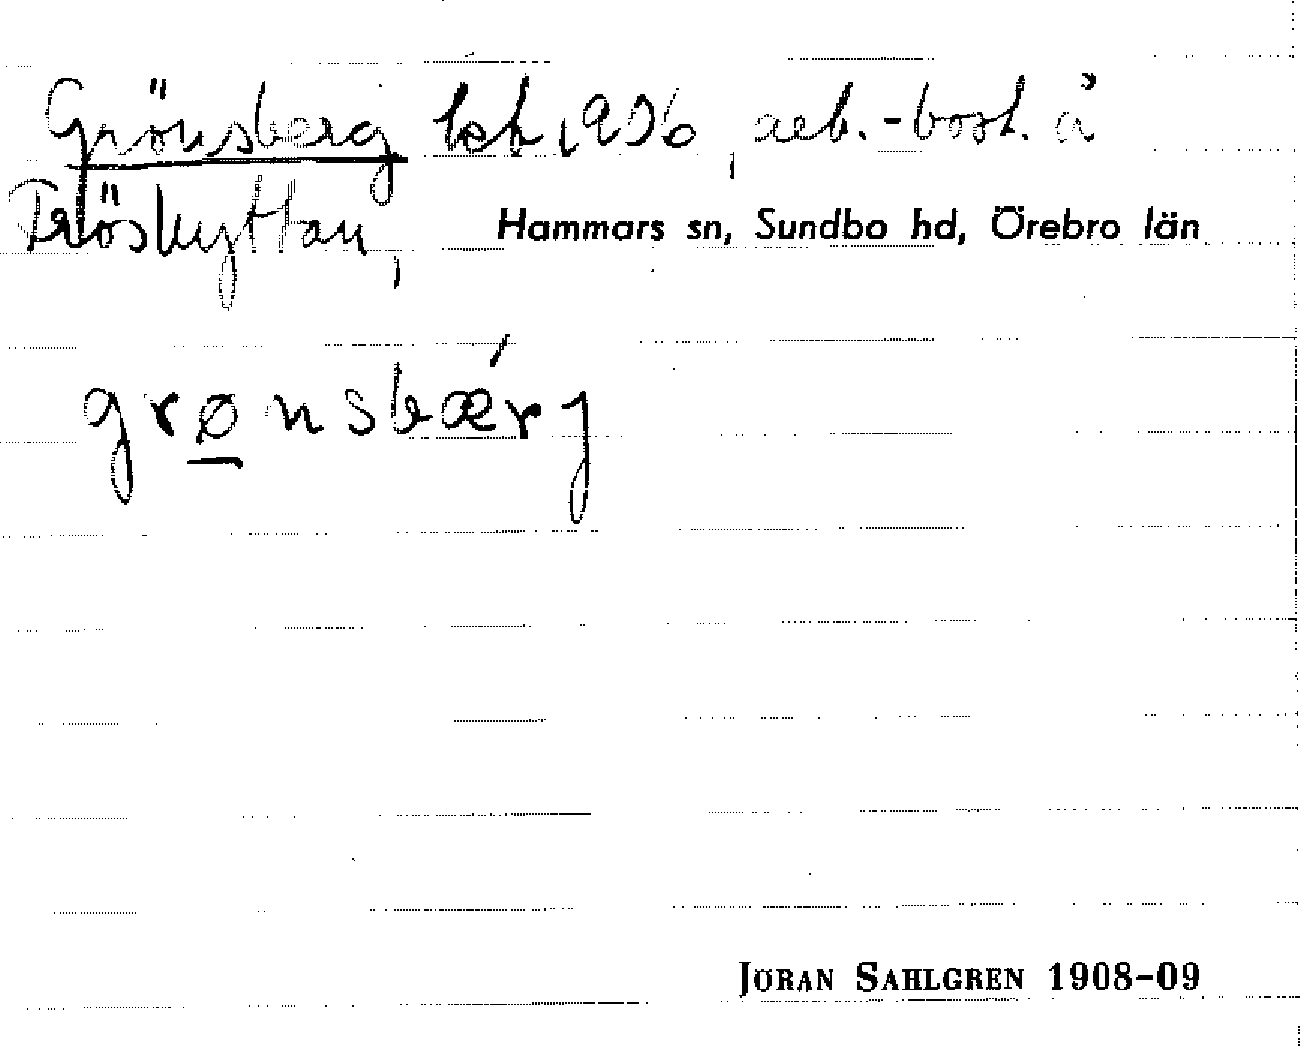 Grönsberg lht 1936, arb.-bost. å
Tröskyttan, Hammars sn, Sundbo hd, Örebro län
grønsbǽrj
JÖRAN SAHLGREN 1908-09